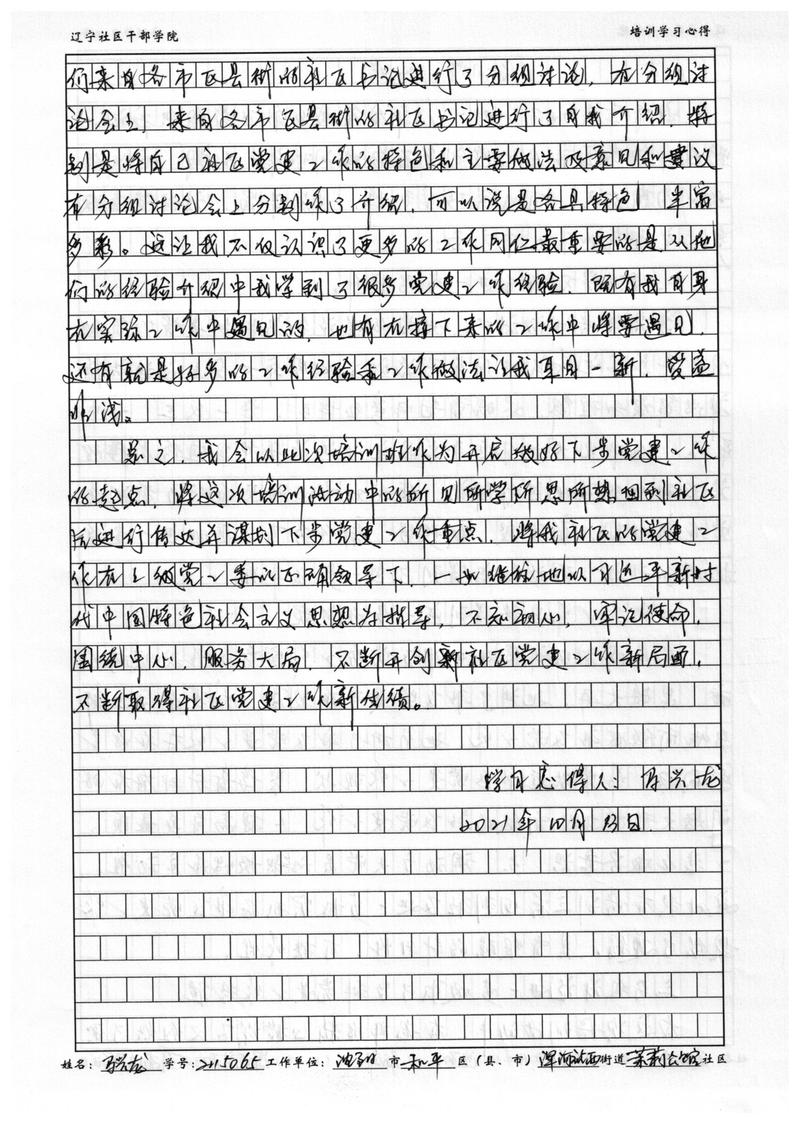 辽宁社区干部学院 培训学习心得
们来自各市区县街的社区书记进行了分组讨论，在分组讨
论会上，来自各市区县街的社区书记进行了自我介绍，特
别是将自己社区党建工作的特色和主要做法及意见和建议
在分组讨论会上分别作了介绍，可以说是各具特色，丰富
多彩。这让我不仅认识了更多的工作同仁，最重要的是从他
们的经验介绍中我学到了很多党建工作经验，既有我自身
在实际工作中遇见的，也有在接下来的工作中将要遇见
还有就是好多的工作经验和工作做法让我耳目一新，受益
非浅。
总之，我会以此次培训班作为开启做好下步党建工作
的起点，将这次培训活动中的所见所学所思所想回到社区
后进行传达并谋划下步党建工作重点，将我社区的党建工
作在上级党工委的正确领导下，一如继往地以习近平新时
代中国特色社会主义思想为指导，不忘初心，牢记使命，
围绕中心，服务大局，不断开创新社区党建工作新局面，
不断取得社区党建工作新成绩。
学习心得人：兴龙
2021年四月 日
姓名：兴龙 学号：2115065 工作单位：沈阳 市 和平 区（县、市） 浑河站西 街道 茉莉公馆 社区